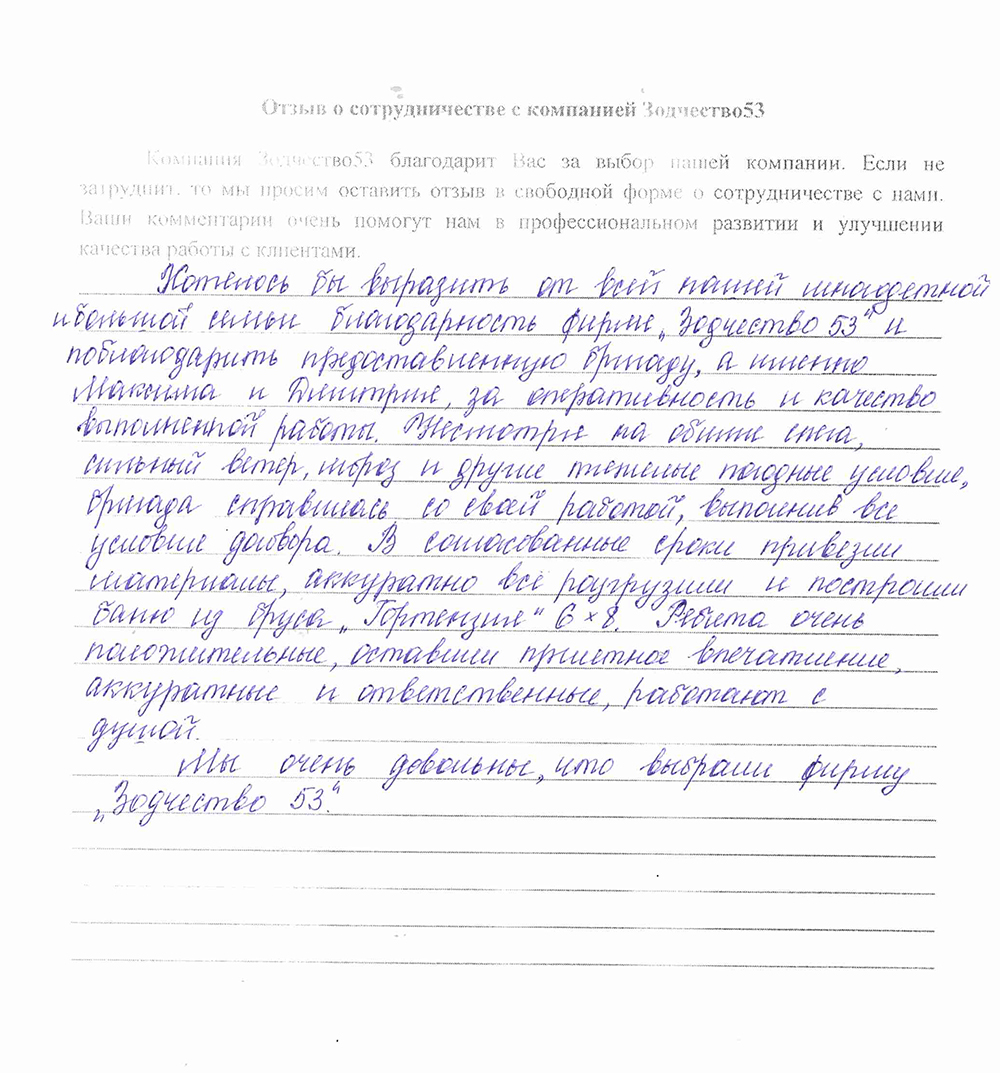 Отзыв о сотрудничестве с компанией Зодчество53
Компания Зодчество53 благодарит Вас за выбор нашей компании. Если не
затруднит, то мы просим оставить отзыв в свободной форме о сотрудничестве с нами.
Ваши комментарии очень помогут нам в профессиональном развитии и улучшении
качества работы с клиентами.
Хотелось бы выразить от всей нашей многодетной
и большой семьи благодарность фирме „Зодчество 53" и
поблагодарить предоставленную бригаду, а именно
Максима и Дмитрия, за оперативность и качество
выполненной работы. Несмотря на обилие снега,
сильный ветер, мороз и другие тяжелые погодные условия,
бригада справилась со своей работой, выполнив все
условия договора. В согласованные сроки привезли
материалы, аккуратно всё разгрузили и построили
баню из бруса „Гортензия" 6×8. Ребята очень
положительные, оставили приятное впечатление,
аккуратные и ответственные, работают с
душой.
Мы очень довольны, что выбрали фирму
„Зодчество 53."